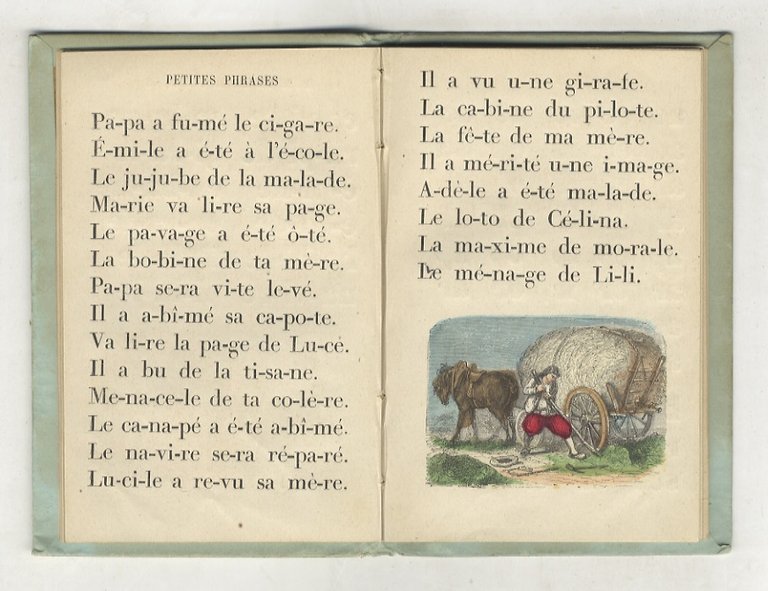 PETITES PHRASES
Pa-pa a fu-mé le ci-ga-re.
É-mi-le a é-té à l'é-co-le.
Le ju-ju-be de la ma-la-de.
Ma-rie va li-re sa pa-ge.
Le pa-va-ge a é-té ô-té.
La bo-bi-ne de ta mè-re.
Pa-pa se-ra vi-te le-vé.
Il a a-bî-mé sa ca-po-te.
Va li-re la pa-ge de Lu-ce.
Il a bu de la ti-sa-ne.
Me-na-ce-le de ta co-lè-re.
Le ca-na-pé a é-té a-bî-mé.
Le na-vi-re se-ra ré-pa-ré.
Lu-ci-le a re-vu sa mè-re.
Il a vu u-ne gi-ra-fe.
La ca-bi-ne du pi-lo-te.
La fê-te de ma mè-re.
Il a mé-ri-té u-ne i-ma-ge.
A-dè-le a é-té ma-la-de.
Le lo-to de Cé-li-na.
La ma-xi-me de mo-ra-le.
Le mé-na-ge de Li-li.